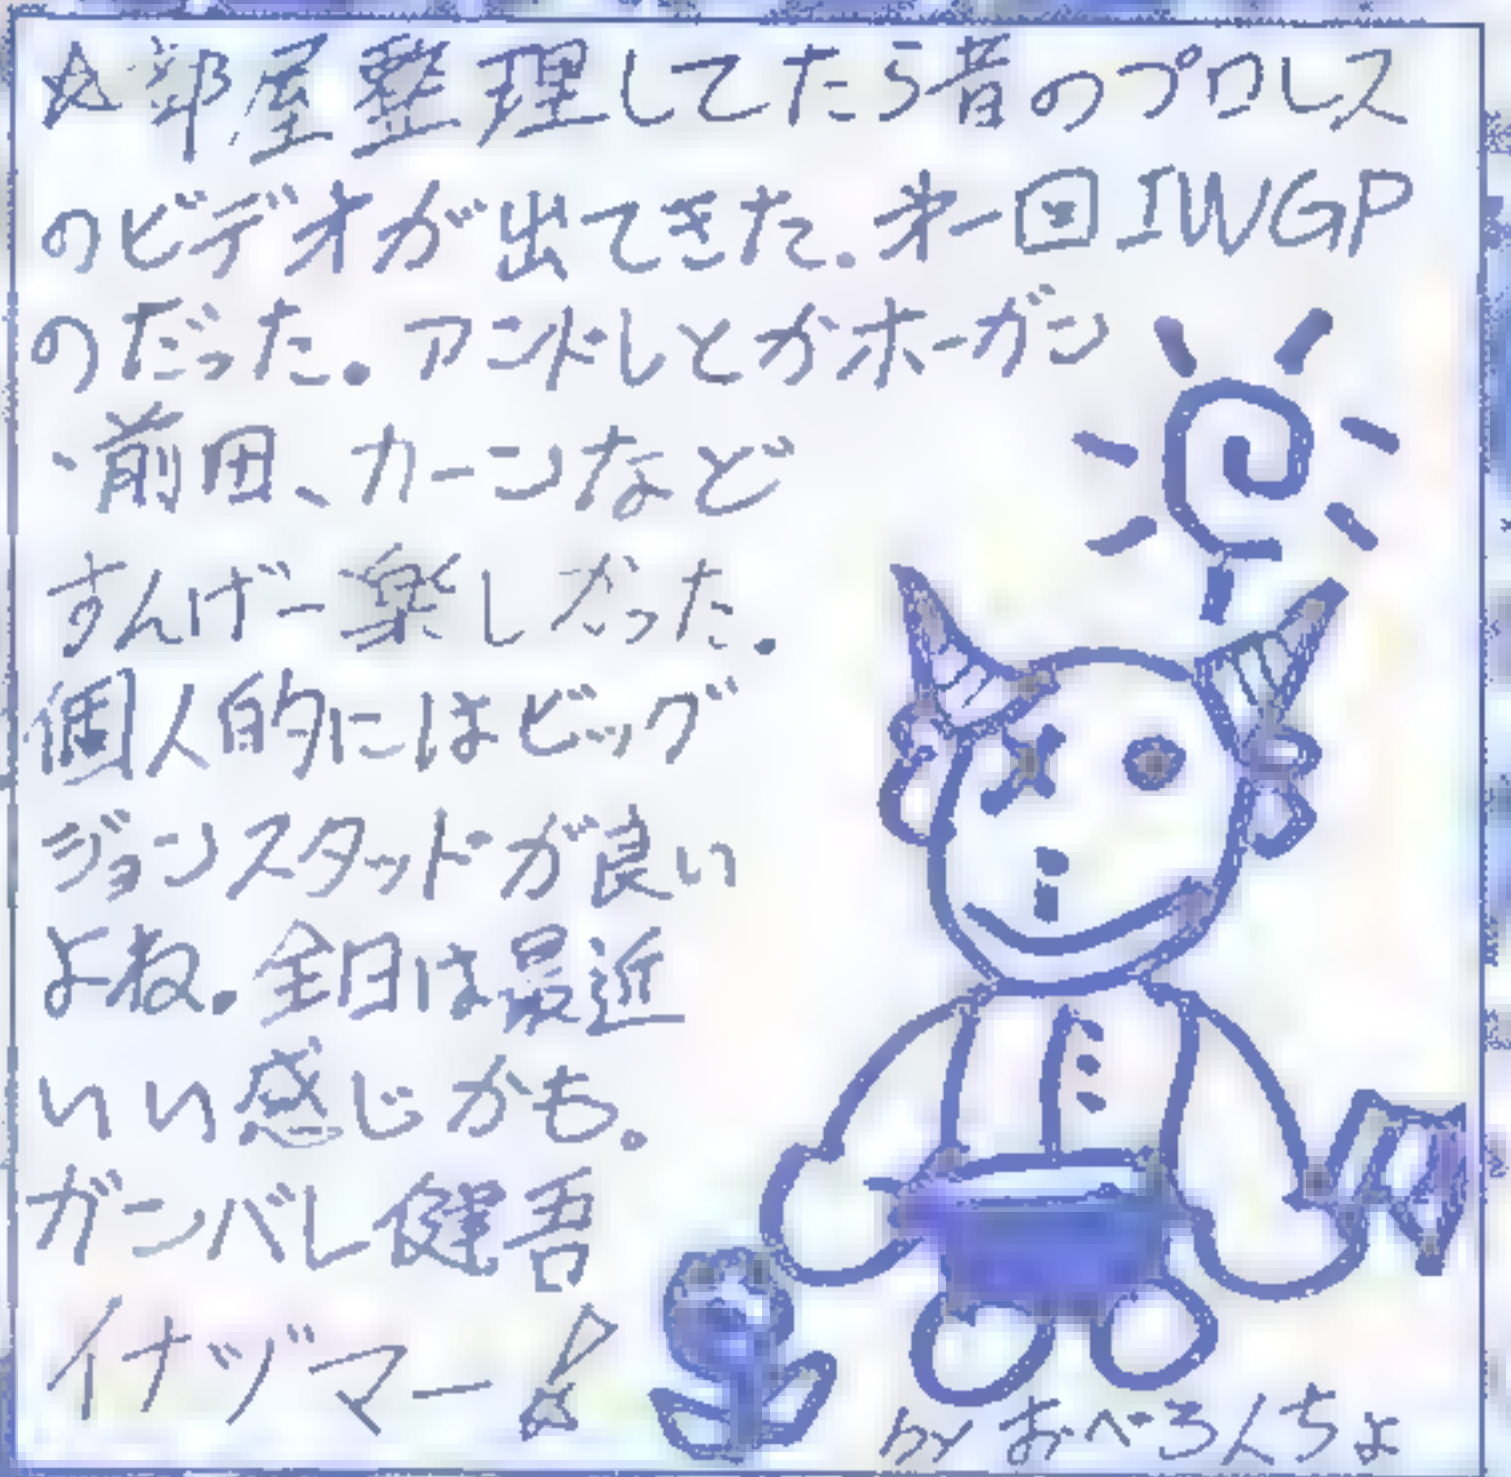 ☆部屋整理してたら昔のプロレス
のビデオが出てきた。第一回IWGP
のだった。アンドレとかホーガン
・前田、カーンなど
すんげー楽しかった。
個人的にはビッグ
ジョンスタッドが良い
よね。全日は最近
いい感じかも。
ガンバレ健吾
イナヅマー!
by おぺろんちょ